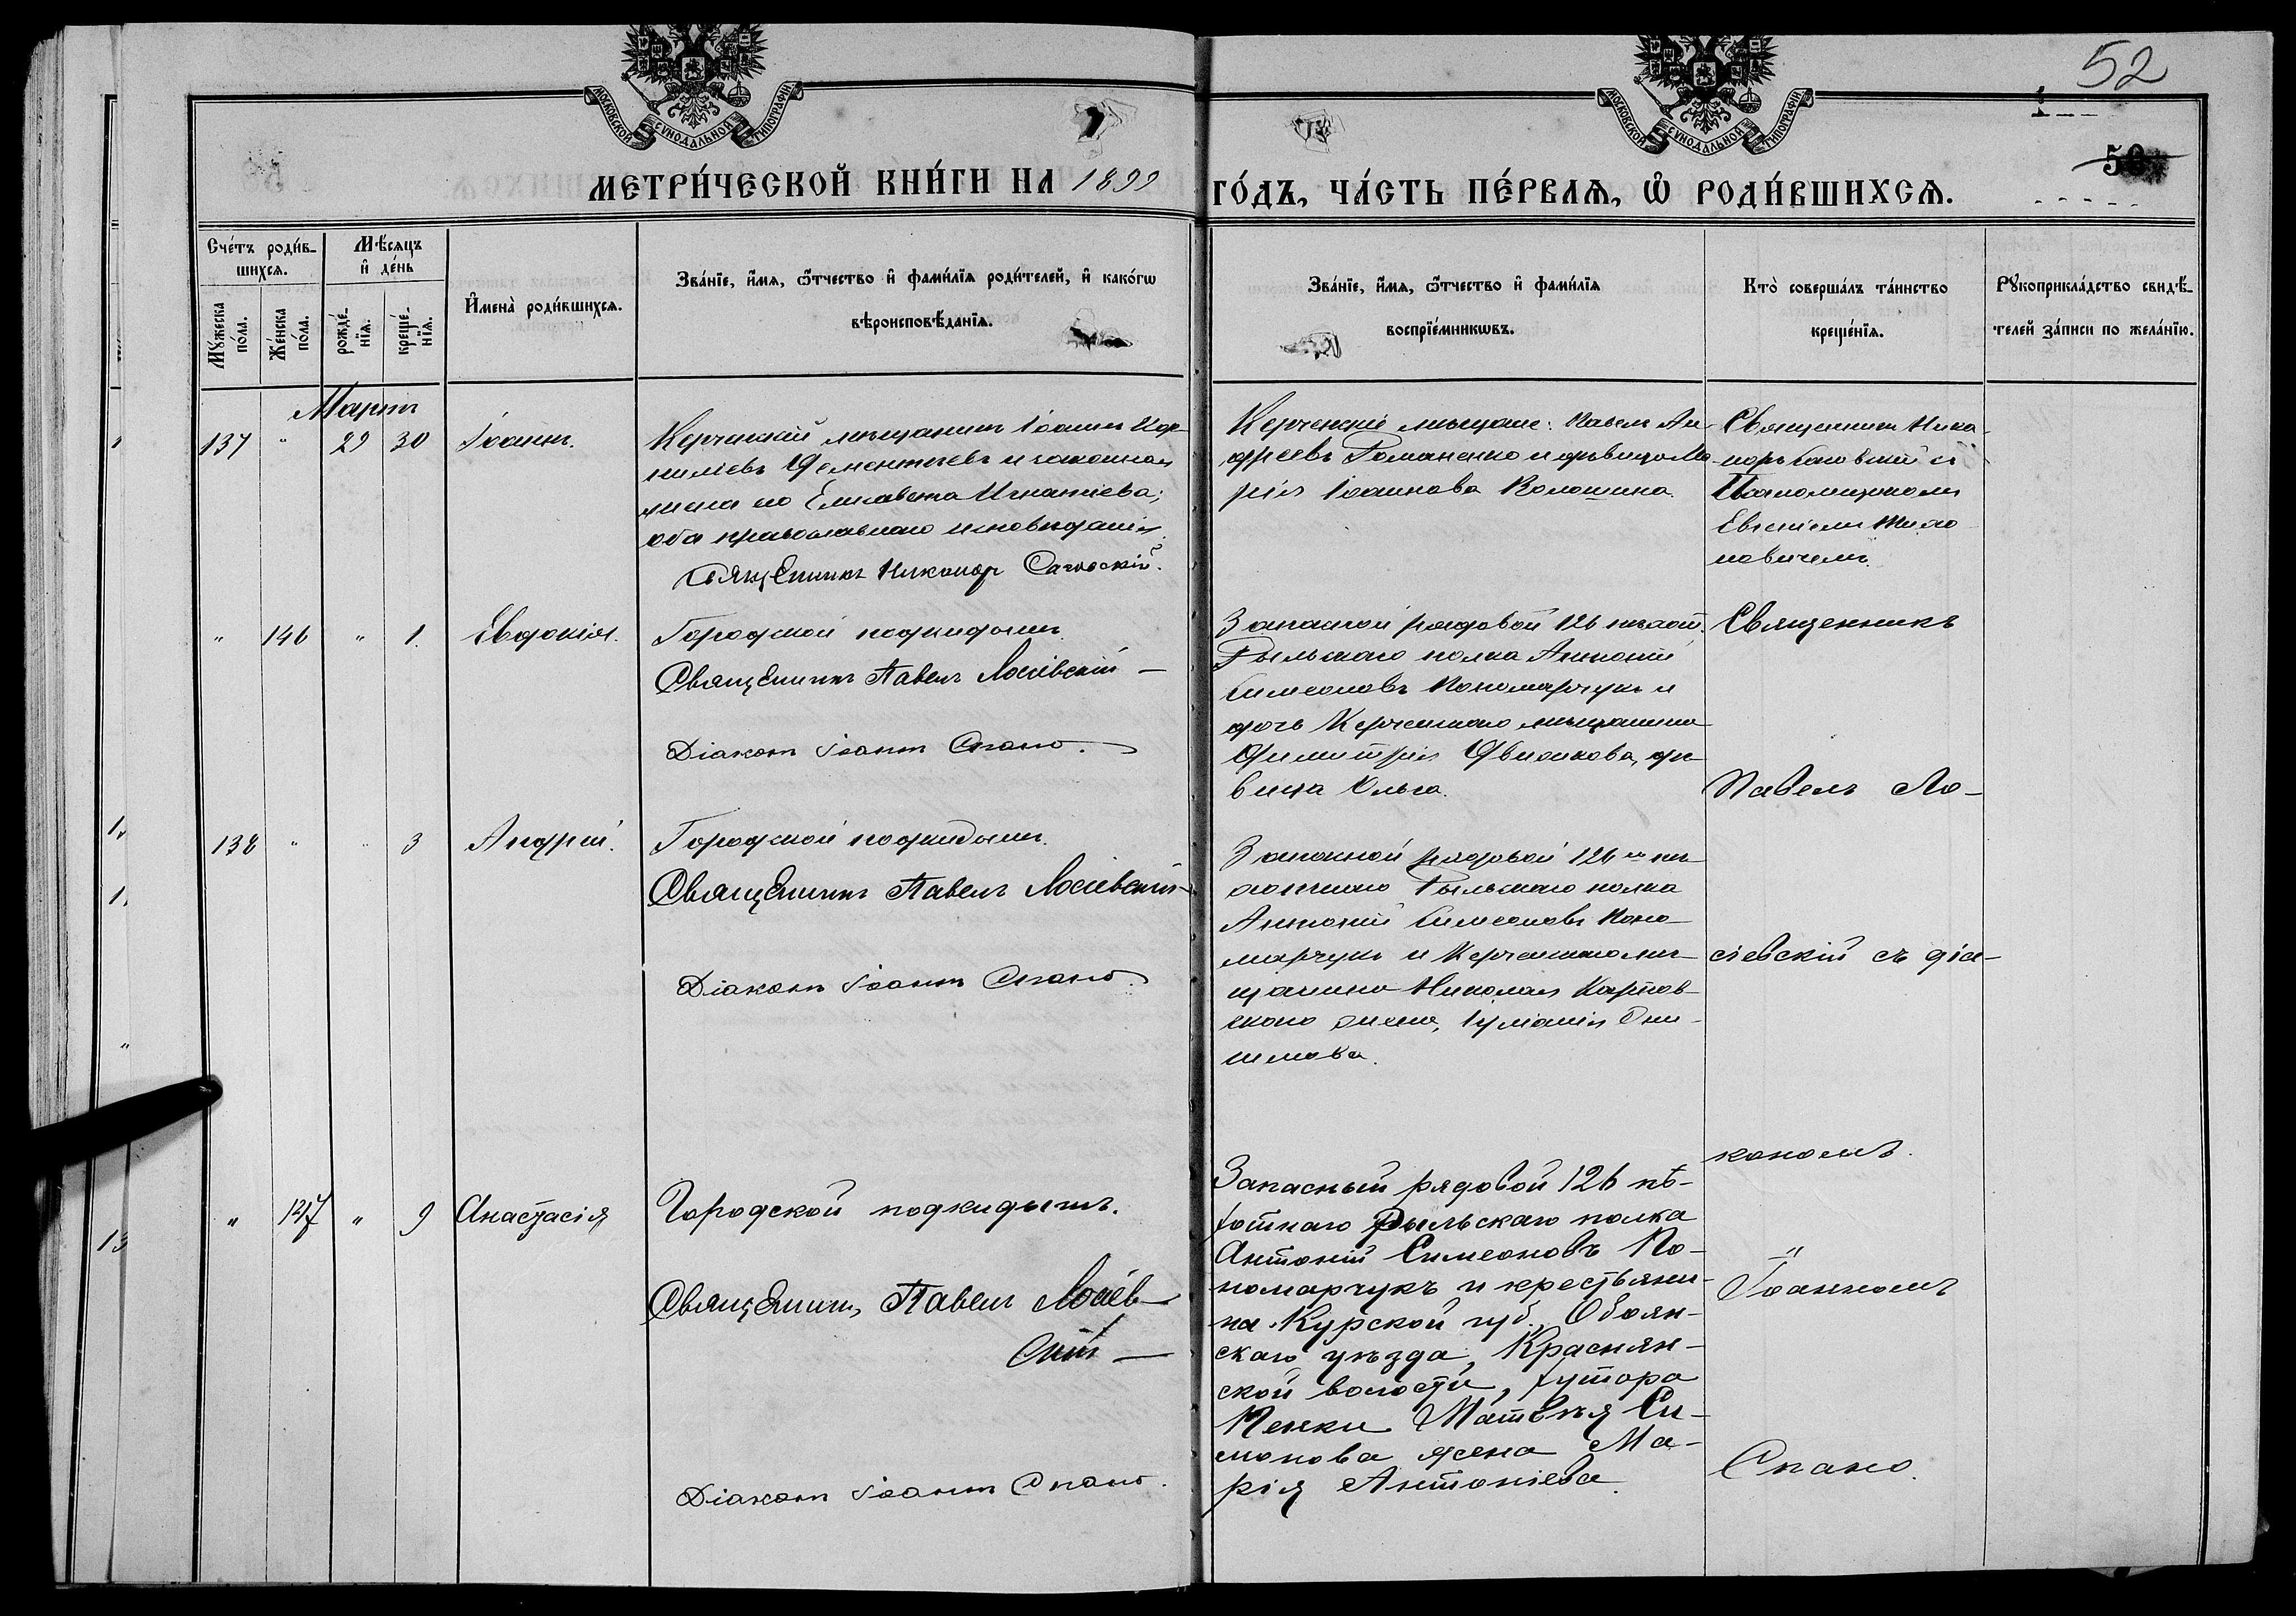 52
МОСКОВСКОЙ СѴНОДАЛЬНОЙ ТИПОГРАФІИ
МОСКОВСКОЙ СѴНОДАЛЬНОЙ ТИПОГРАФІИ
МЕТРИ́ЧЕСКОЙ КНИ́ГИ НА 1899 ГО́ДЪ, ЧА́СТЬ ПЕ́РВАѦ, Ѡ҆ РОДИ́ВШИХСѦ.
50
Сче́тъ роди́в-
шихсѧ.
Мꙋ́жеска
по́ла.
Же́нска
по́ла.
Мѣ́сѧцъ
и҆ де́нь
рожде́-
нїѧ.
креще́-
нїѧ.
И҆мена̀ роди́вшихсѧ.
Зва́нїе, и҆́мѧ, ѻ҆́тчество и҆ фами́лїѧ роди́телей, и҆ како́гѡ
вѣроисповѣ́данїѧ.
Зва́нїе, и҆́мѧ, ѻ҆́тчество и҆ фами́лїѧ
воспрїе́мникѡвъ.
Кто̀ соверша́лъ та́инство
креще́нїѧ.
Рꙋкоприкла́дство свидѣ́-
телей за́писи по жела́нїю.
Мартъ
137 " 29 30 Іоаннъ.
Керченскій мѣщанинъ Іоаннъ Кор-
ниліевъ Дементьевъ и законная
жена его Елисавета Игнатіева;
оба православнаго исповѣданія.
Священникъ Никаноръ Саговскій.
Керченскіе мѣщане: Павелъ Ан-
дреевъ Романенко и дѣвица Ма-
рія Іоаннова Волошина.
Священникъ Ника-
норъ Саговскій съ
Псаломщикомъ
Евгеніемъ
новичемъ.
" 146 " 1. Евдокія.
Городской подкидышъ.
Священникъ Павелъ Лосіевскій —
Діаконъ Іоаннъ Спано.
Запасной рядовой 126 пѣхот.
Рыльскаго полка Антоній
Симеоновъ Пономарчукъ и
дочь Керченскаго мѣщанина
Димитрія Двиликова, дѣ-
вица Ольга.
Священникъ
Павелъ Ло-
138 " " 3 Андрей.
Городской подкидышъ.
Священникъ Павелъ Лосіевскій —
Діаконъ Іоаннъ Спано.
Запасной рядовой 126го пѣ-
хотнаго Рыльскаго полка
Антоній Симеоновъ Поно-
марчукъ и Керченскаго мѣ-
щанина Николая Карпов-
скаго жена, Іуліанія Они-
симова.
сіевскій съ діа-
кономъ.
" 147 " 9 Анастасія
Городской подкидышъ.
Священникъ Павелъ Лосіев-
скій —
Діаконъ Іоаннъ Спано.
Запасный рядовой 126 пѣ-
хотнаго Рыльскаго полка
Антоній Симеоновъ По-
номарчукъ и крестьяни-
на Курской губ. Обоян-
скаго уѣзда, Краснян-
ской волости, хутора
Пенки Матвѣя Си-
монова жена Ма-
рія Антоніева.
"
Іоанномъ
Спано.